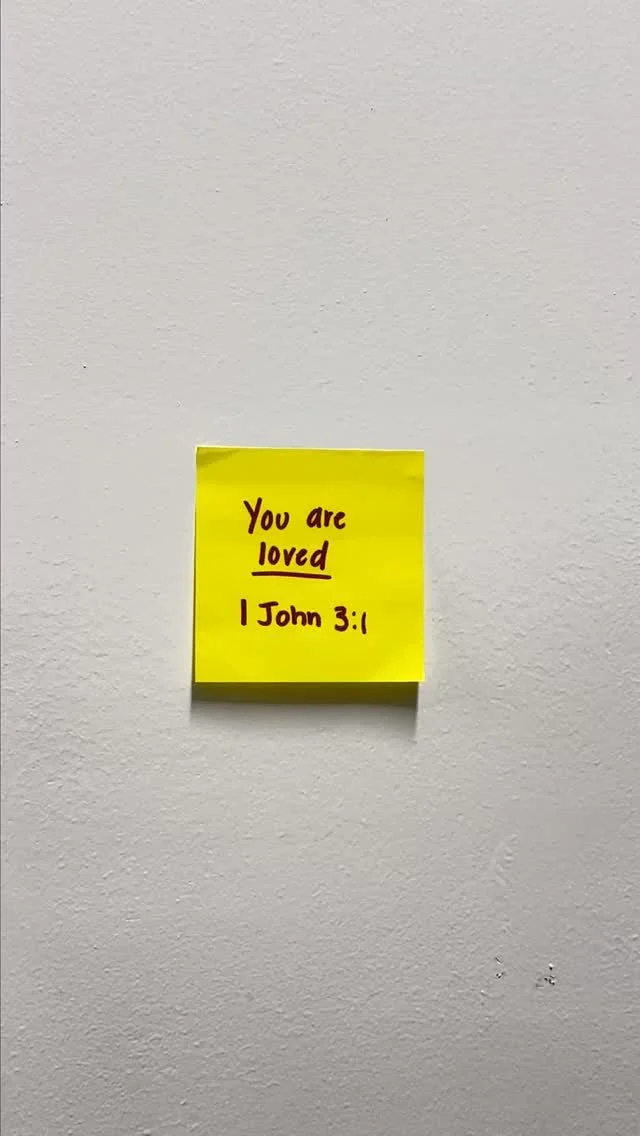 You are
loved
1 John 3:1